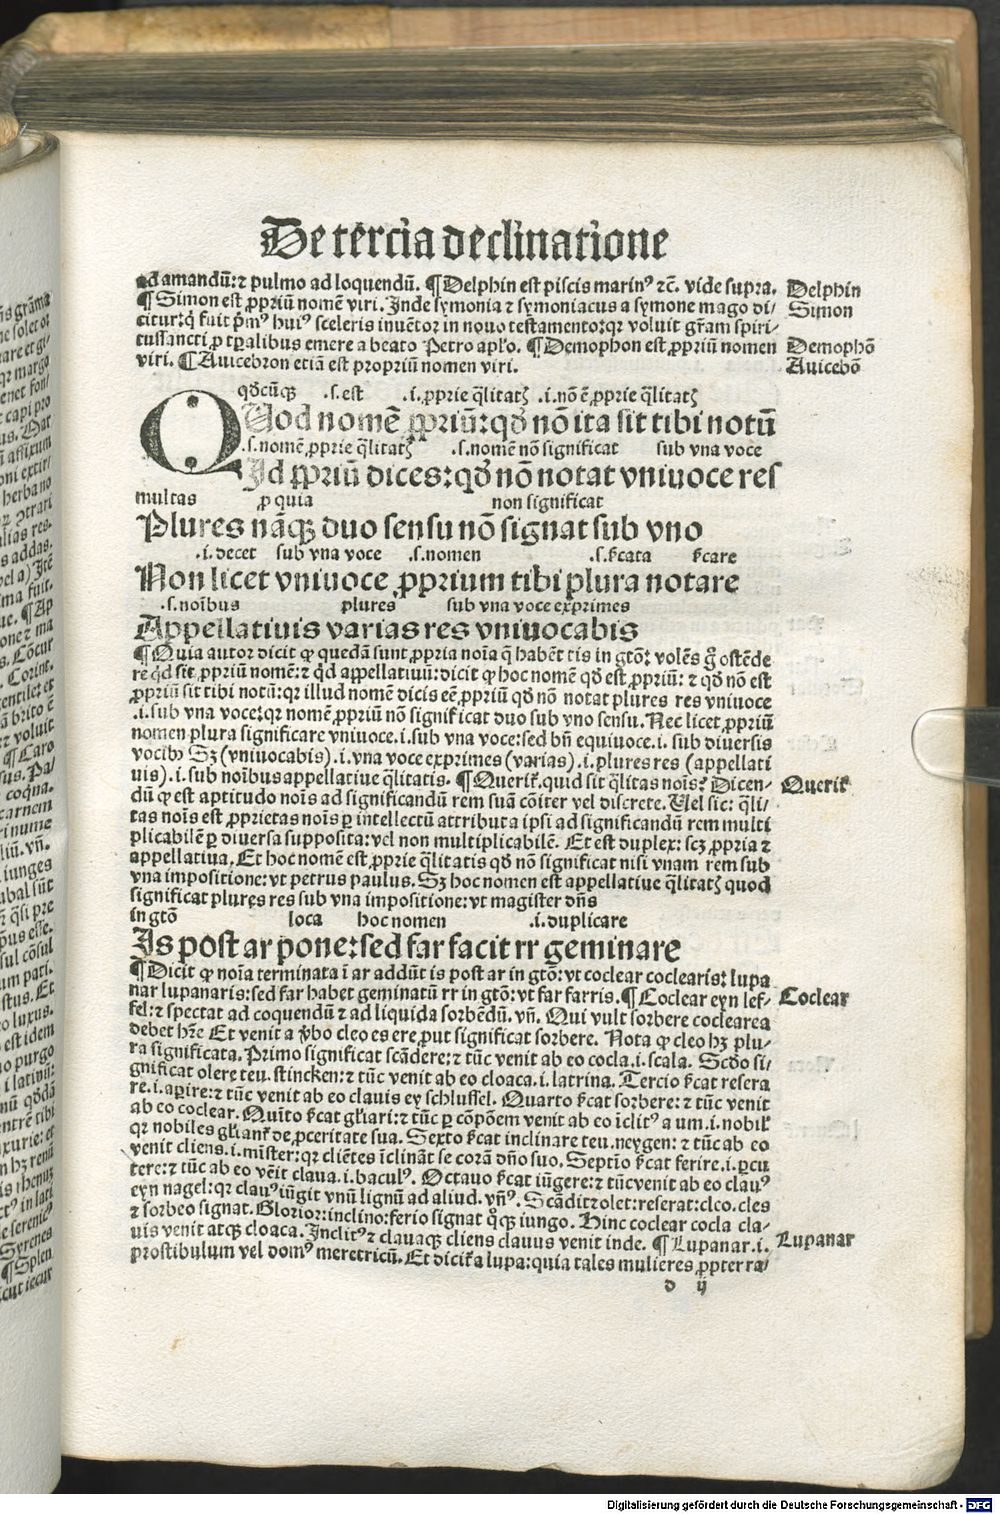 De tercia declinatione
ad amandū: ⁊ pulmo ad loquendū. ¶ Delphin est piscis marinꝰ ⁊c̄. vide supra.
Delphin
¶ Simon est ꝓpriū nomē viri. Inde symonia ⁊ symoniacus a symone mago di⸗
Simon
citur: qͥ fuit pͥmꝰ huiꝰ sceleris inuētor in nouo testamento: qꝛ voluit gr̄am spiri⸗
tussancti ꝓ tꝑalibus emere a beato Petro apl'o. ¶ Demophon est ꝓpriū nomen
Demophō
viri. ¶ Auicebron etiā est propriū nomen viri.
Auicebō
qd̄cūqꝫ .s. est .i. ꝓprie q̄litatꝭ .i. nō ē ꝓprie q̄litatꝭ
QUod nomē ꝓpriū: qd̄ nō ita sit tibi notū
.s. nomē ꝓprie q̄litatꝭ .s. nomē nō significat sub vna voce
Id ꝓpriū dices: qd̄ nō notat vniuoce res
multas ꝓ quia non significat
Plures nāqꝫ duo sensu nō signat sub vno
.i. decet sub vna voce .s. nomen .s. s͛cata s͛care
Non licet vniuoce ꝓprium tibi plura notare
.s. noībus plures sub vna voce exprimes
Appellatiuis varias res vniuocabis
¶ Quia autor dicit ꝙ quedā sunt ꝓpria noīa q̄ habēt tis in gtō: volēs gͦ ostēde
re qͥd sit ꝓpriū nomē: ⁊ qͥd appellatiuū: dicit ꝙ hoc nomē qd̄ est ꝓpriū: ⁊ qd̄ nō est
ꝓpriū sit tibi notū: qꝛ illud nomē dicis eē ꝓpriū qd̄ nō notat plures res vniuoce
.i. sub vna voce: qꝛ nomē ꝓpriū nō significat duo sub vno sensu. Nec licet ꝓpriū
nomen plura significare vniuoce .i. sub vna voce: sed bn̄ equiuoce .i. sub diuersis
vocibꝰ Sꝫ (vniuocabis) .i. vna voce exprimes (varias) .i. plures res (appellati
uis) .i. sub noībus appellatiue q̄litatis. ¶ Querit͛. quid sit q̄litas noīs? Dicen⸗
Querit͛
dū ꝙ est aptitudo noīs ad significandū rem suā cōiter vel discrete. Uel sic: q̄li⸗
tas noīs est ꝓprietas noīs ꝑ intellectū attributa ipsi ad significandū rem multi
plicabilē ꝑ diuersa supposita: vel non multiplicabilē. Et est duplex: scꝫ ꝓpria ⁊
appellatiua. Et hoc nomē est ꝓprie q̄litatis qd̄ nō significat nisi vnam rem sub
vna impositione: vt petrus paulus. Sꝫ hoc nomen est appellatiue q̄litatꝭ quod
significat plures res sub vna impositione: vt magister dn̄s
in gtō loca hoc nomen .i. duplicare
Is post ar pone: sed far facit rr geminare
¶ Dicit ꝙ noīa terminata ī ar addūt is post ar in gtō: vt coclear coclearis: lupa
nar lupanaris: sed far habet geminatū rr in gtō: vt far farris. ¶ Coclear eyn lef⸗
Coclear
fel: ⁊ spectat ad coquendū ⁊ ad liquida sorbēdū. vn̄. Qui vult sorbere coclearea
debet hr̄e Et venit a v̓bo cleo es ere, put significat sorbere. Nota ꝙ cleo hꝫ plu⸗
ra significata. Primo significat scādere: ⁊ tūc venit ab eo cocla .i. scala. Scd̄o si⸗
gnificat olere teu. stincken: ⁊ tūc venit ab eo cloaca .i. latrina. Tercio s͛cat resera
re .i. aꝑire: ⁊ tūc venit ab eo clauis ey schlussel. Quarto s͛cat sorbere: ⁊ tūc venit
ab eo coclear. Quīto s͛cat gl'iari: ⁊ tūc ꝑ cōpōem venit ab eo īclitꝰ a um .i. nobil'
qꝛ nobiles gl'iant͛ de ꝓceritate sua. Sexto s͛cat inclinare teu. neygen: ⁊ tūc ab eo
venit cliens .i. mīster: qꝛ cliētes īclināt se corā dn̄o suo. Septīo s͛cat ferire .i. ꝑcu
tere: ⁊ tūc ab eo vēit claua .i. baculꝰ. Octauo s͛cat iūgere: ⁊ tūc venit ab eo clauꝰ
eyn nagel: qꝛ clauꝰ iūgit vnū lignū ad aliud. vn̄ꝰ. Scādit ⁊ olet: reserat: cleo. cles
⁊ sorbeo signat. Glorior: inclino: ferio signat qͦqꝫ iungo. Hinc coclear cocla cla⸗
uis venit atqꝫ cloaca. Inclitꝰ ⁊ clauaqꝫ cliens clauus venit inde. ¶ Lupanar .i.
Lupanar
prostibulum vel domꝰ meretricū. Et dicit͛ a lupa: quia tales mulieres ꝓpter ra⸗
d ij
Digitalisierung gefördert durch die Deutsche Forschungsgemeinschaft - DFG